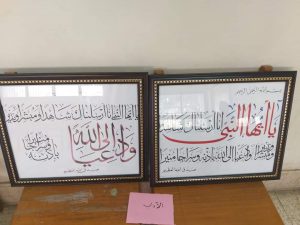 بسم الله الرحمن الرحيم
يا أيها النبي إنا أرسلناك شاهدا
ومبشرا ونذيرا وداعيا إلى الله بإذنه وسراجا منيرا
صدق الله العظيم
يا أيها النبي إنا أرسلناك شاهدا ومبشرا ونذيرا
وداعيا إلى الله
بإذنه وسراجا منيرا